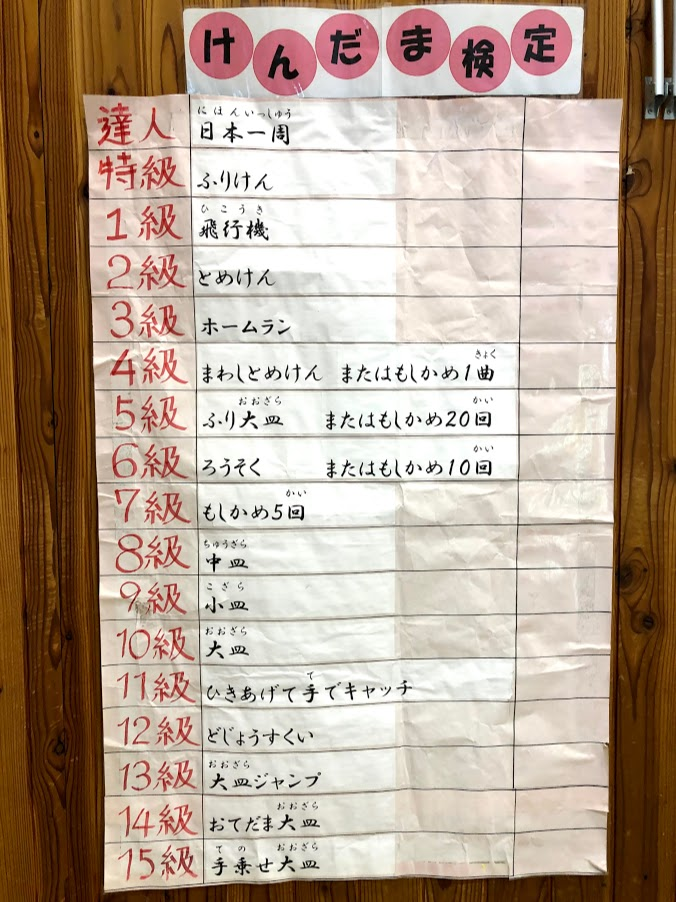 けんだま検定
にほんいっしゅう
達人 日本一周
特級 ふりけん
ひこうき
1級 飛行機
2級 とめけん
3級 ホームラン
きょく
4級 まわしとめけん またはもしかめ1曲
おおざら かい
5級 ふり大皿 またはもしかめ20回
かい
6級 ろうそく またはもしかめ10回
かい
7級 もしかめ5回
ちゅうざら
8級 中皿
こざら
9級 小皿
おおざら
10級 大皿
て
11級 ひきあげて手でキャッチ
12級 どじょうすくい
おおざら
13級 大皿ジャンプ
おおざら
14級 おてだま大皿
ての おおざら
15級 手乗せ大皿